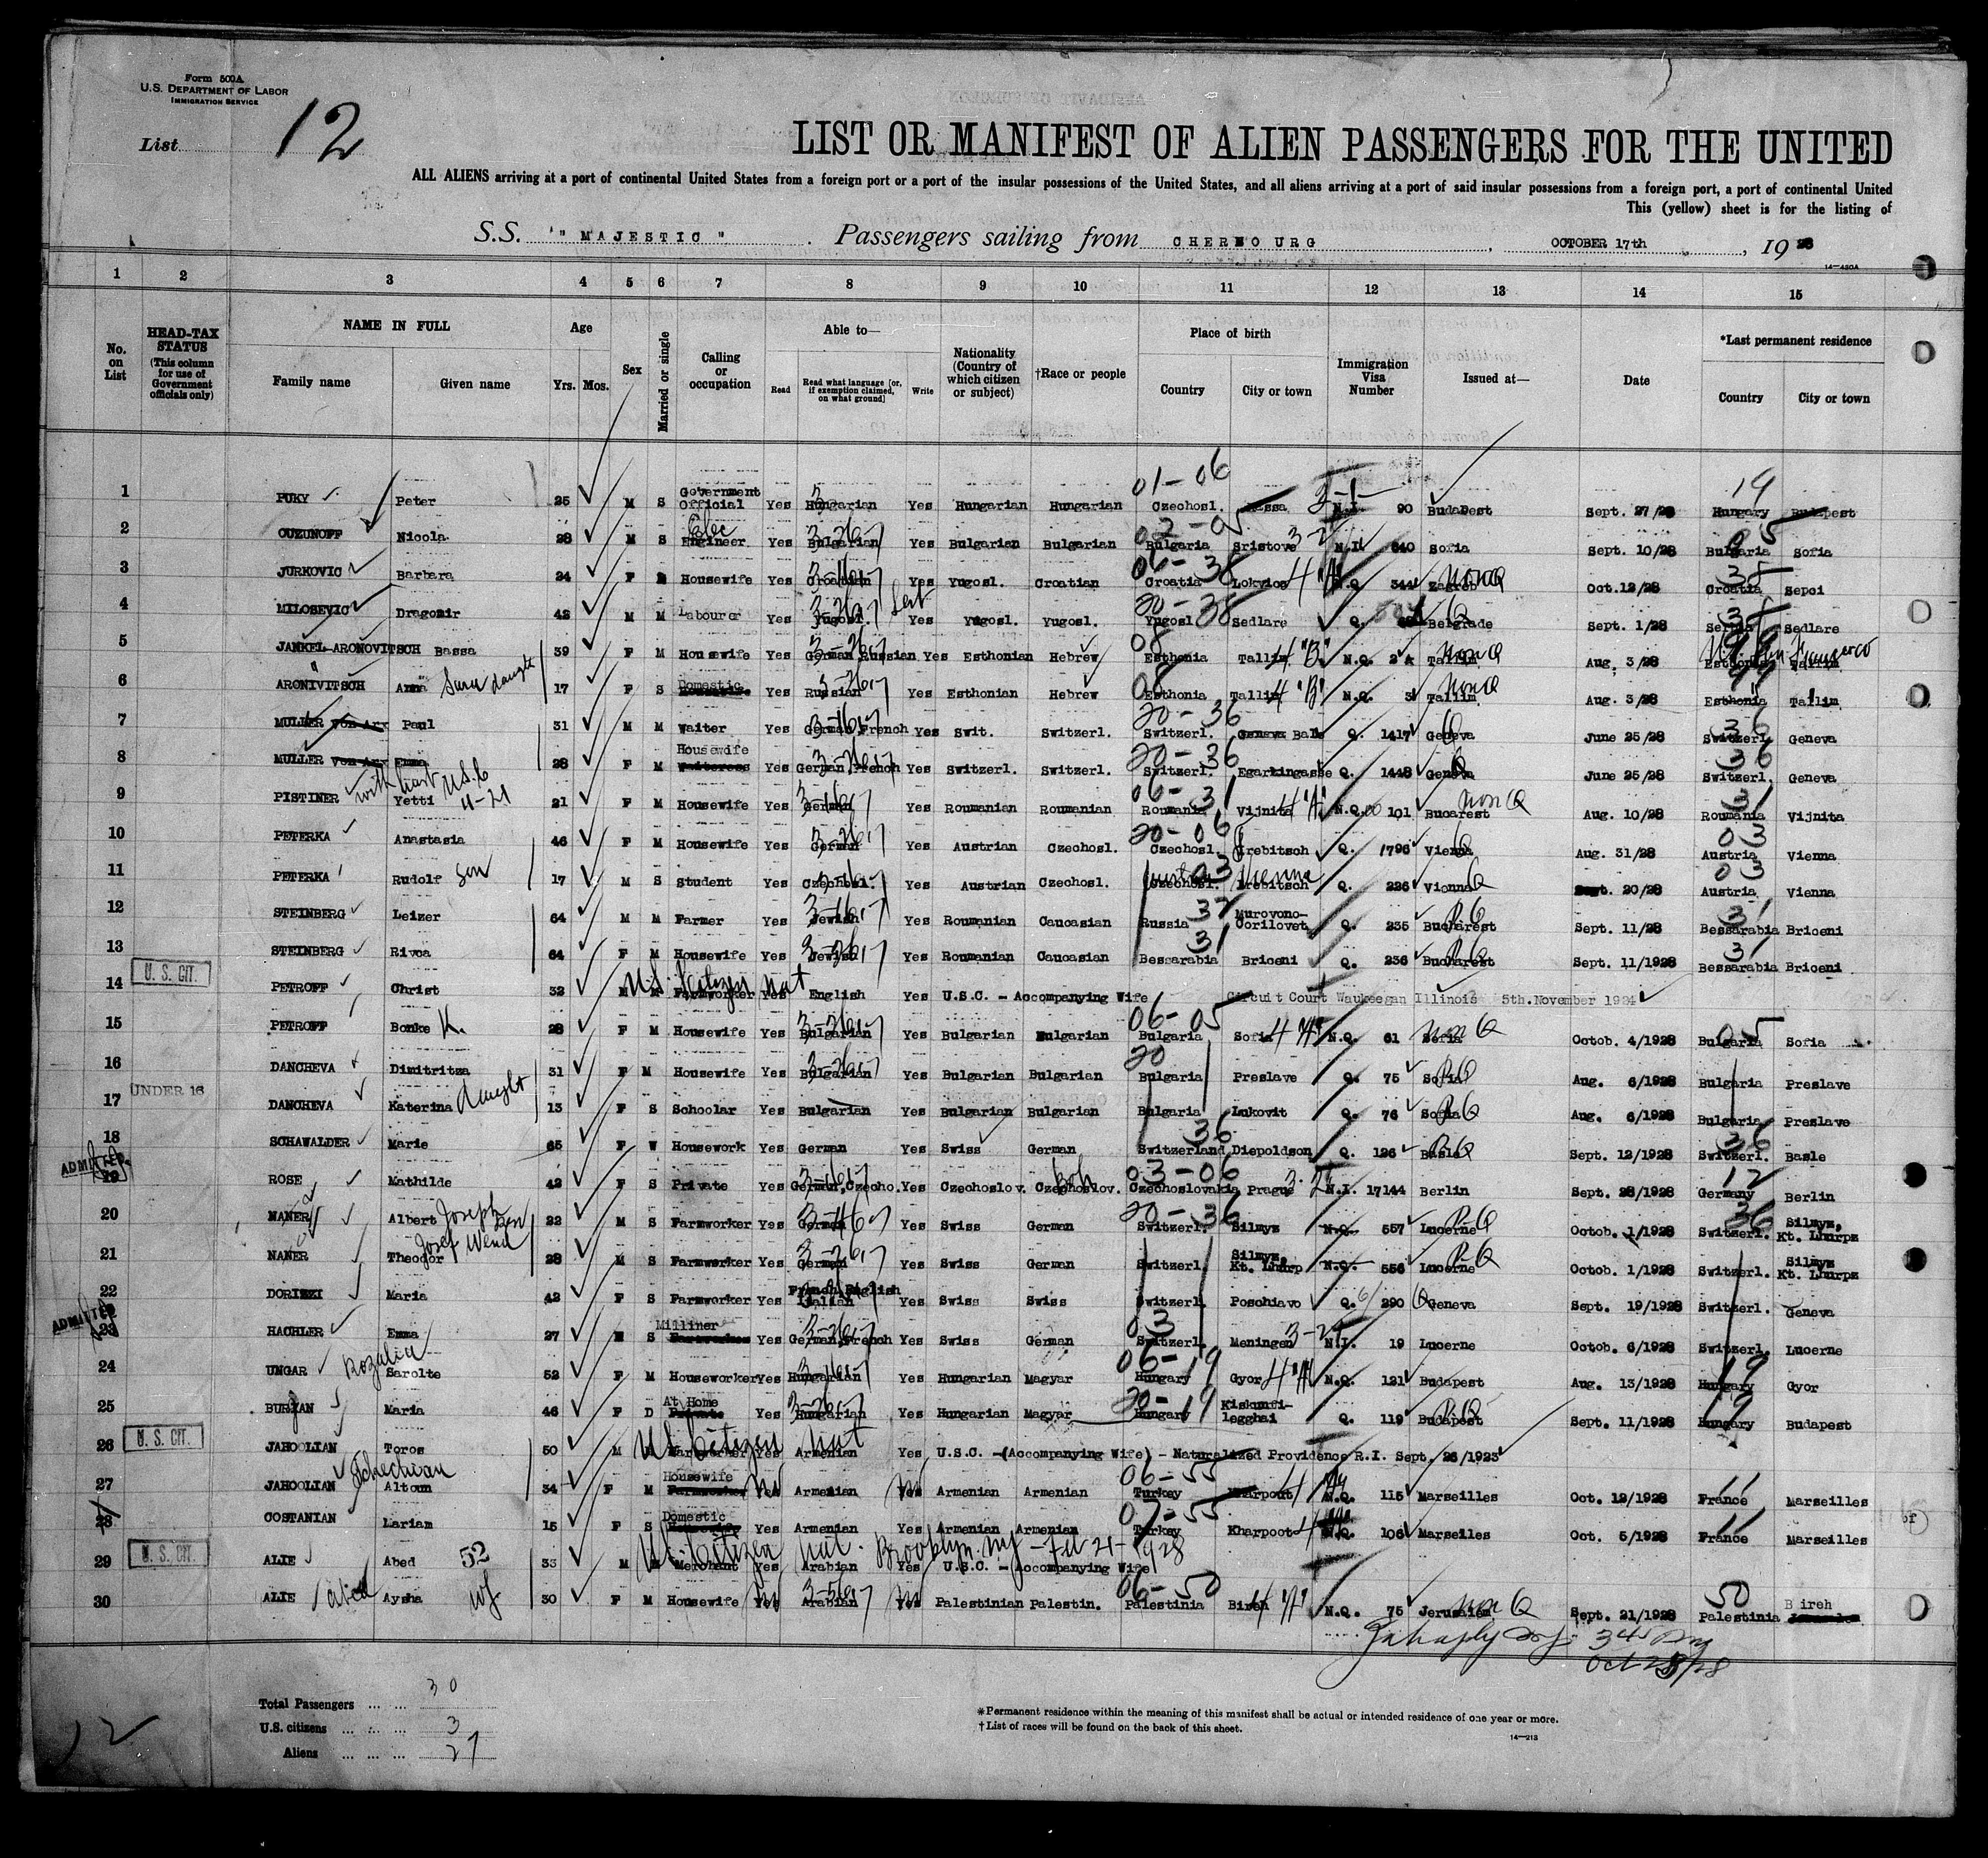 Form 500A
U.S. DEPARTMENT OF LABOR
IMMIGRATION SERVICE
List 12
LIST OR MANIFEST OF ALIEN PASSENGERS FOR THE UNITED
ALL ALIENS arriving at a port of continental United States from a foreign port or a port of the insular possessions of the United States, and all aliens arriving at a port of said insular possessions from a foreign port, a port of continental United
This (yellow) sheet is for the listing of
S.S. "MAJESTIC" Passengers sailing from CHERBOURG, OCTOBER 17th, 1928
14—480A
1 2 3 4 5 6 7 8 9 10 11 12 13 14 15
No. on List
HEAD-TAX STATUS (This column for use of Government officials only)
NAME IN FULL Family name Given name
Age Yrs. Mos.
Sex
Married or single
Calling or occupation
Able to— Read Read what language [or, if exemption claimed, on what ground] Write
Nationality (Country of which citizen or subject)
†Race or people
Place of birth Country City or town
Immigration Visa Number
Issued at—
Date
*Last permanent residence Country City or town
1 PUKY Peter 25 M S Government Official Yes Hungarian Yes Hungarian Hungarian 01-06 Czechosl. Kassa N.I. 90 Budapest Sept. 27/28 19 Hungary Budapest
2 OUZUNOFF Nicola 28 M S Elec Engineer Yes Bulgarian Yes Bulgarian Bulgarian 02-05 Bulgaria Sristove 3-2 N.I. 640 Sofia Sept. 10/28 05 Bulgaria Sofia
3 JURKOVIC Barbara 24 F Housewife Yes Croatian Yes Yugosl. Croatian 06-38 Croatia Lokvica 4"A" N.Q. 344 Zagreb Non Q Oct.12/28 Croatia Sepci
4 MILOSEVIC Dragomir 42 M M Labourer Yes Yugosl. Yes Yugosl. Yugosl. 20-38 Yugosl Sedlare Q. Belgrade Q Sept. 1/28 Serbia Sedlare
5 JANKEL-ARONOVITSCH Bassa 39 F M Housewife Yes German Russian Yes Esthonian Hebrew 08 Esthonia Tallin 4"B" N.Q. 2 Tallim Non Q Aug. 3/28 Esthonia Tallim San Francisco
6 ARONIVITSCH Anna Sara daught 17 F S Domestic Yes Russian Yes Esthonian Hebrew 08 Esthonia Tallin 4"B" N.Q. 3 Tallim Non Q Aug. 3/28 Esthonia Tallim
7 MULLER von Arx Paul 31 M M Waiter Yes German French Yes Swit. Switzerl. 20-36 Switzerl. Geneva Bale Q. 1417 Geneva Q June 25/28 36 Switzerl. Geneva
8 MULLER von Arx Emma 28 F M Housewife Waitress Yes German, French Yes Switzerl. Switzerl. 20-36 Switzerl. Egarkingasse Q. 1448 Geneva Q June 25/28 36 Switzerl. Geneva
9 PISTINER Yetti 21 F M Housewife Yes German Yes Roumanian Roumanian 06-31 Roumania Vijnita 4"A" N.Q. 101 Bucarest Non Q Aug. 10/28 31 Roumania Vijnita
10 PETERKA Anastasia 46 F M Housewife Yes German Yes Austrian Czechosl. 20-06 Czechosl. Trebitsch Q. 1796 Vienna Q Aug. 31/28 03 Austria Vienna
11 PETERKA Rudolf Son 17 M S Student Yes Czechosl. Yes Austrian Czechosl. Austria 03 Czechosl. Trebitsch Vienna Q. 226 Vienna Q Sept. 20/28 03 Austria Vienna
12 STEINBERG Leizer 64 M M Farmer Yes Jewish Yes Roumanian Caucasian 37 Russia Murovono-Corilovet Q. 235 Bucharest Sept. 11/28 31 Bessarabia Briceni
13 STEINBERG Rivca 64 F M Housewife Yes Jewish Yes Roumanian Caucasian 31 Bessarabia Briceni Q. 236 Bucharest Sept. 11/1928 31 Bessarabia Briceni
U. S. CIT.
14 PETROFF Christ 32 M M Farmworker Yes English Yes U.S.C. - Accompanying Wife Circuit Court Waukeegan Illinois 5th.November 1924
U.S. Citizen Nat
15 PETROFF Bonke K. 28 F M Housewife Yes Bulgarian Yes Bulgarian Bulgarian 06-05 Bulgaria Sofia 4"A" N.Q. 61 Sofia Non Q Octob. 4/1928 05 Bulgaria Sofia
16 DANCHEVA Dimitritza 31 F M Housewife Yes Bulgarian Yes Bulgarian Bulgarian 20 Bulgaria Preslave Q. 75 Sofia Aug. 6/1928 Bulgaria Preslave
UNDER 16
17 DANCHEVA Katerina daught 13 F S Schoolar Yes Bulgarian Yes Bulgarian Bulgarian Bulgaria Lukovit Q. 76 Sofia Aug. 6/1928 Bulgaria Preslave
18 SCHAWALDER Marie 65 F W Housework Yes German Yes Swiss German 36 Switzerland Diepoldson Q. 126 Basle Sept. 12/1928 36 Switzerl. Basle
ADMITTED
19 ROSE Mathilde 42 F S Private Yes German, Czecho. Yes Czechoslov. Czechoslov. Boh 03-06 Czechoslovakia Prague 3-2 N.I. 17144 Berlin Sept. 28/1928 12 Germany Berlin
20 NANER Albert Joseph 22 M S Farmworker Yes German Yes Swiss German 20-36 Switzerl. Silmyz N.Q. 557 Lucerne Octob. 1/1928 36 Switzerl. Silmyz, Kt. Lhurpz
21 NANER Theodor Josef 28 M S Farmworker Yes German Yes Swiss German Switzerl. Silmyz, Kt. Lhurp N.Q. 556 Lucerne Octob. 1/1928 Switzerl. Silmyz Kt. Lhurpz
22 DORIZZI Maria 42 F S Farmworker Yes French English Italian Yes Swiss Swiss Switzerl. Poschiavo Q. 290 Geneva Sept. 19/1928 Switzerl. Geneva
ADMITTED
23 HACHLER Emma 27 S Milliner Farmworker Yes German, French Yes Swiss German 03 Switzerl. Meningen 3-2 N.I. 19 Lucerne Octob. 6/1928 Switzerl. Lucerne
24 UNGAR Sarolte Rozalia 52 F M Houseworker Yes Hungarian Yes Hungarian Magyar 06-19 Hungary Gyor 4"A" N.Q. 121 Budapest Aug. 13/1928 19 Hungary Gyor
25 BURJAN Maria 46 F D At Home Private Yes Hungarian Yes Hungarian Magyar 20-19 Hungary Kiskunfi-legghai Q. 119 Budapest Sept. 11/1928 19 Hungary Budapest
U. S. CIT.
26 JAHOOLIAN Toros 50 M Yes Armenian Yes U.S.C. -(Accompanying Wife) - Naturalized Providence R.I. Sept. 26/1923
U.S. Citizen Nat
27 JAHOOLIAN Altoun 34 F M Housewife Farmworker Yes No Armenian Yes No Armenian Armenian 06-55 Turkey Kharpout N.Q. 115 Marseilles Oct. 12/1928 France Marseilles
28 COSTANIAN Mariam 15 F S Domestic Housewife Yes Armenian Yes Armenian Armenian 07-55 Turkey Kharpoot N.Q. 106 Marselles Oct. 5/1928 France Marseilles
U. S. CIT.
29 ALIE Abed 52 33 M M Merchant Yes Arabian Yes U.S.C. - Accompanying Wife
US Citizen Nat. Brooklyn NY - Feb 21-1928
30 ALIE Abed Aysha wf 30 F M Housewife No Yes Arabian No Yes Palestinian Palestin. 06-50 Palestinia Bireh 4"A" N.Q. 75 Jerusalem Non Q Sept. 21/1928 50 Palestinia Bireh
Oct 28/28
Total Passengers 30
U.S. citizens 3
Aliens 27
12
*Permanent residence within the meaning of this manifest shall be actual or intended residence of one year or more.
†List of races will be found on the back of this sheet.
14—213